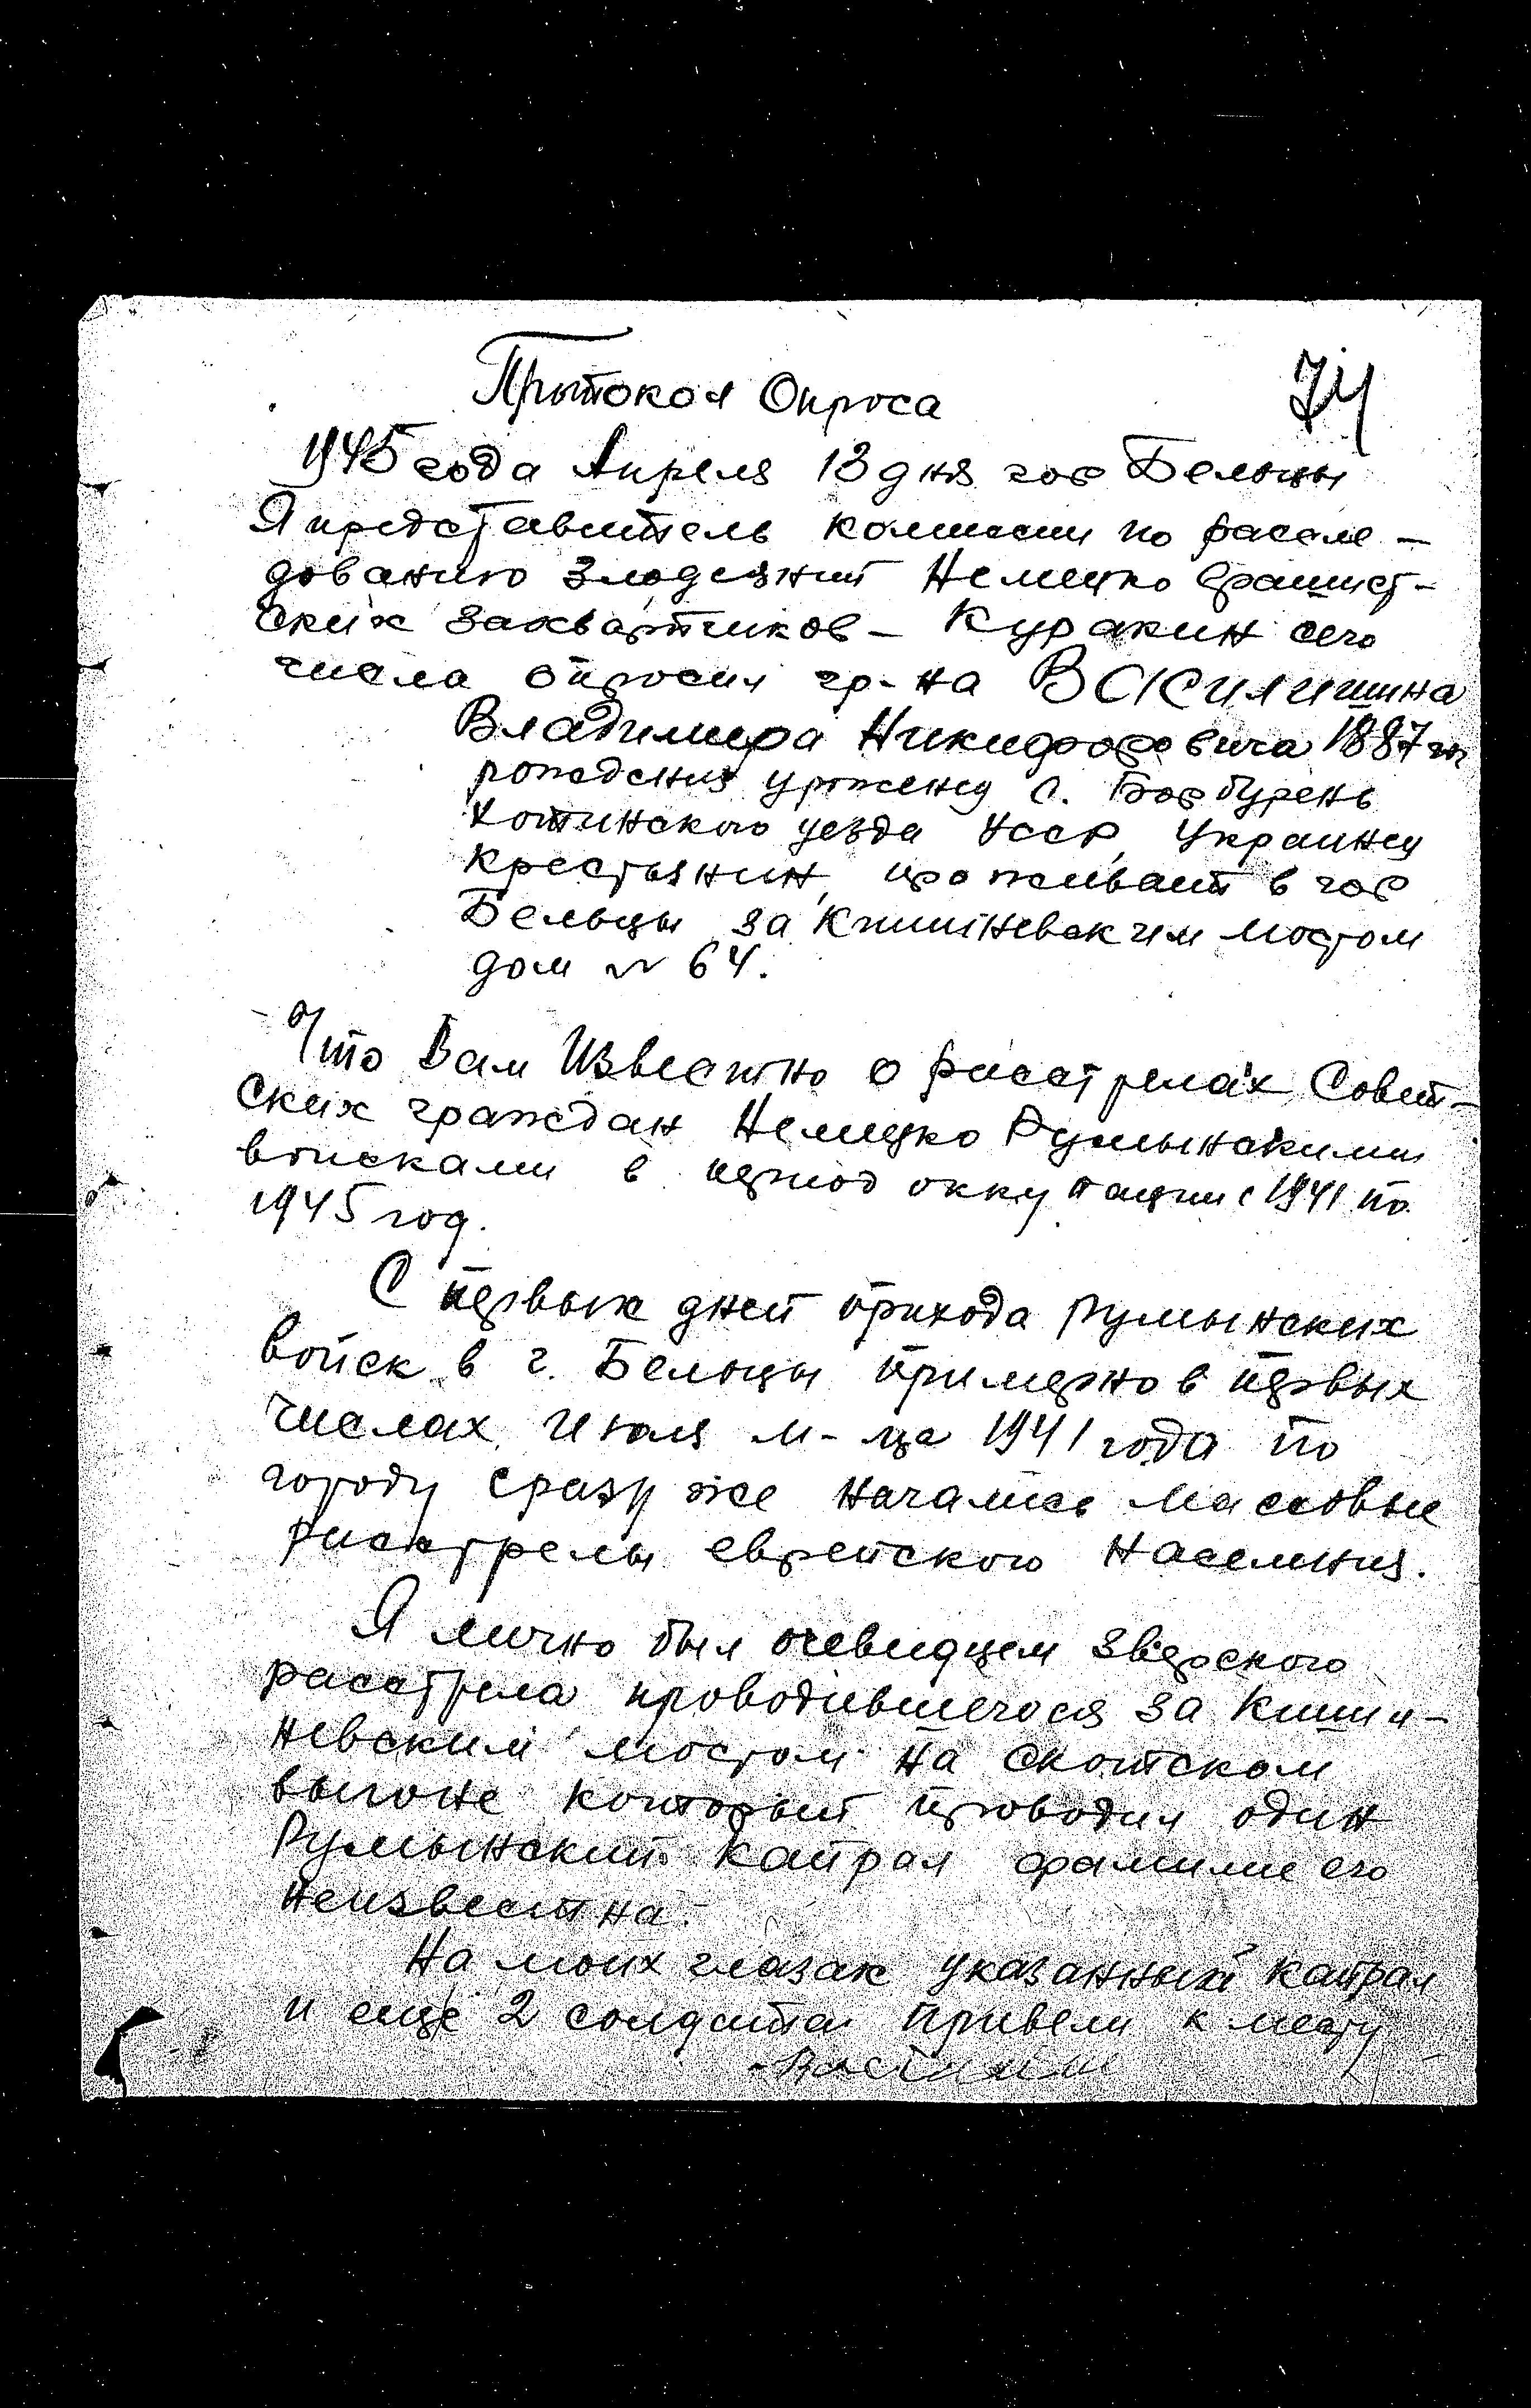 Протокол Опроса
74
1945 года Апреля 13 дня гор Бельцы
Я представитель комиссии по рассле-
дованию злодеяний Немецко фашист-
ских захватчиков - Куракин сего
числа опросил гр-на
Владимира Никифоровича 1887 г.
рождения уроженец с. Барбурень
Хотинского уезда УССР, Украинец
крестьянин, проживает в гор
Бельцы за Кишиневским мостом
дом № 64.
Что Вам Известно о расстрелах Совет-
ских граждан Немецко Румынскими
войсками в период оккупации с 1941 по
1945 год.
С первых дней прихода румынских
войск в г. Бельцы примерно в первых
числах Июля м-ца 1941 года по
городу сразу же начались массовые
расстрелы еврейского населения.
Я лично был очевидцем зверского
расстрела проводившегося за Киши-
невским мостом на скотском
выгоне который проводил один
Румынский капрал фамилие его
неизвестна.
На моих глазах указанный капрал
и еще 2 солдата привели к месту